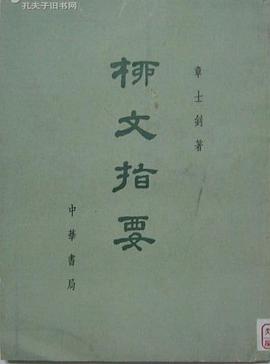 孔夫子旧书网
章士釗著
柳文指要
中華書局